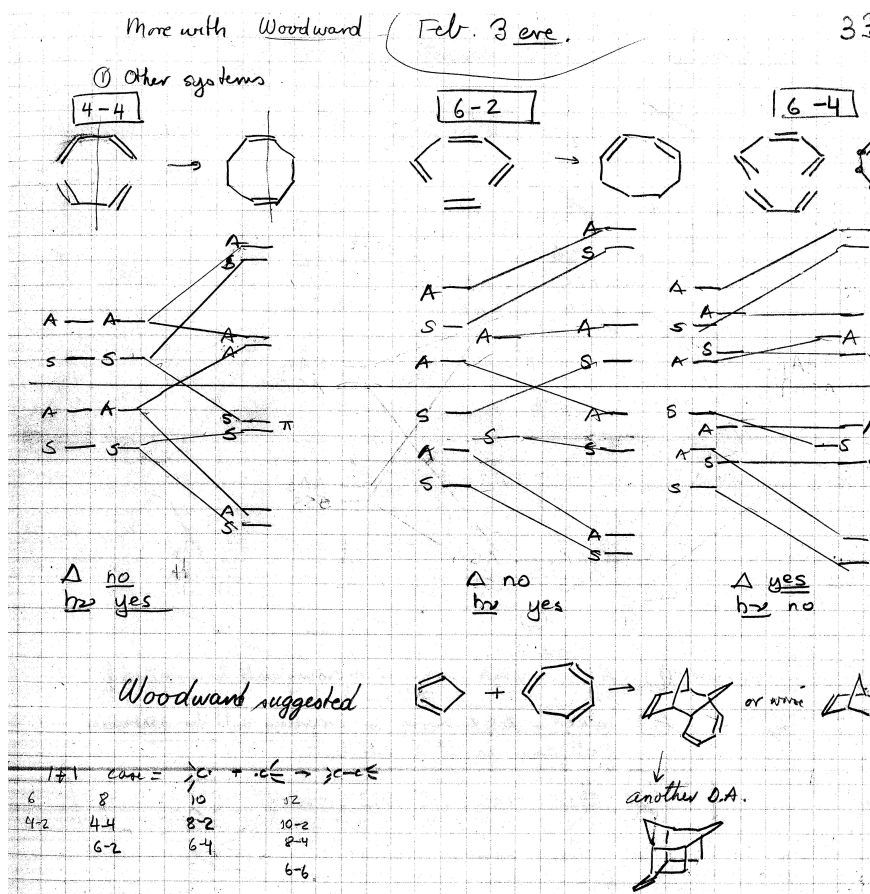 More with Woodward Feb. 3 eve. 33
① Other systems
4-4 6-2 6-4
A
S
A A
A A
S S
A A
S
S π
S S
A
S
A
S
A
S
A A
A S
S A
S S
A
S
A
S
A
A
S
S
A
A
S
A
S
A
S
S
Δ no
hν yes
Δ no
hν yes
Δ yes
hν no
Woodward suggested + → or worse
1+1 case = C· + ·C → C-C
another D.A.
6 8 10 12
4-2 4-4 8-2 10-2
6-2 6-4 8-4
6-6